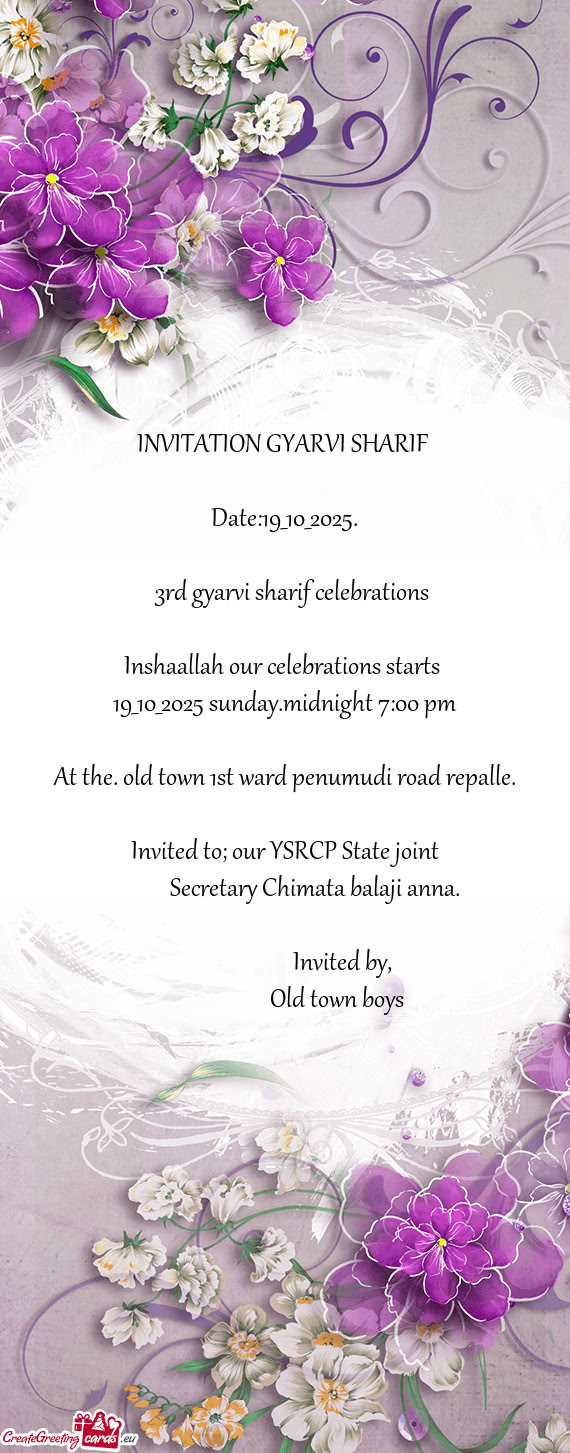 INVITATION GYARVI SHARIF
Date:19_10_2025.
3rd gyarvi sharif celebrations
Inshaallah our celebrations starts
19_10_2025 sunday.midnight 7:00 pm
At the. old town 1st ward penumudi road repalle.
Invited to; our YSRCP State joint
Secretary Chimata balaji anna.
Invited by,
Old town boys
CreateGreeting cards .eu